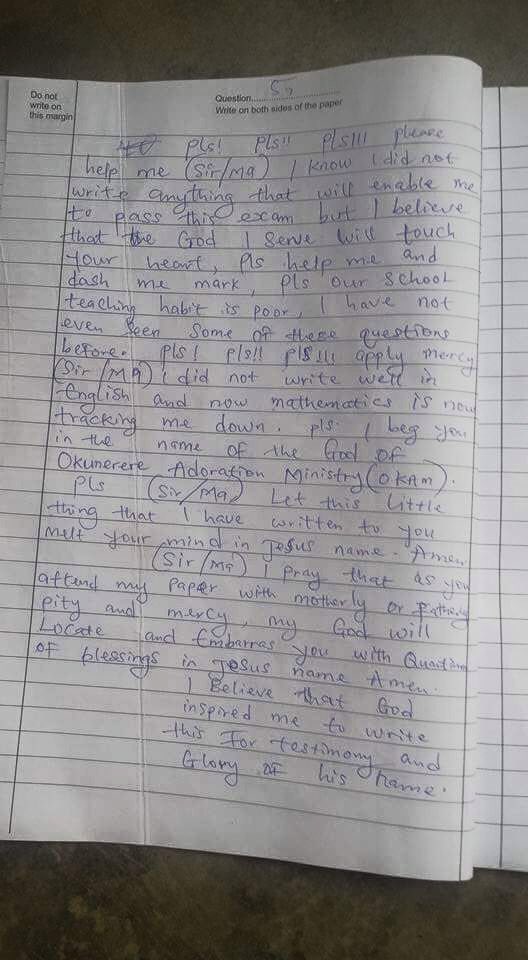 Do not
write on
this margin
Question............ 5,
Write on both sides of the paper
pls! pls!! pls!!! please
help me (Sir/Ma) I know I did not
write anything that will enable me
to pass this exam but I believe
that the God I serve will touch
your heart, pls help me and
dash me mark, pls our school
teaching habit is poor, I have not
even seen some of these questions
before. pls! pls!! pls!!! apply mercy
(Sir/Ma) I did not write well in
English and now mathematics is now
tracking me down. pls. I beg you
in the name of the God of
Okunerere Adoration Ministry (OKAM).
pls (Sir/Ma) Let this little
thing that I have written to you
melt your mind in Jesus name. Amen
(Sir/Ma) I pray that as you
attend my paper with motherly or
pity and mercy, my God will
Locate and Embarras you with
of blessings in Jesus name Amen.
I Believe that God
inspired me to write
this for testimony and
Glory of his name.